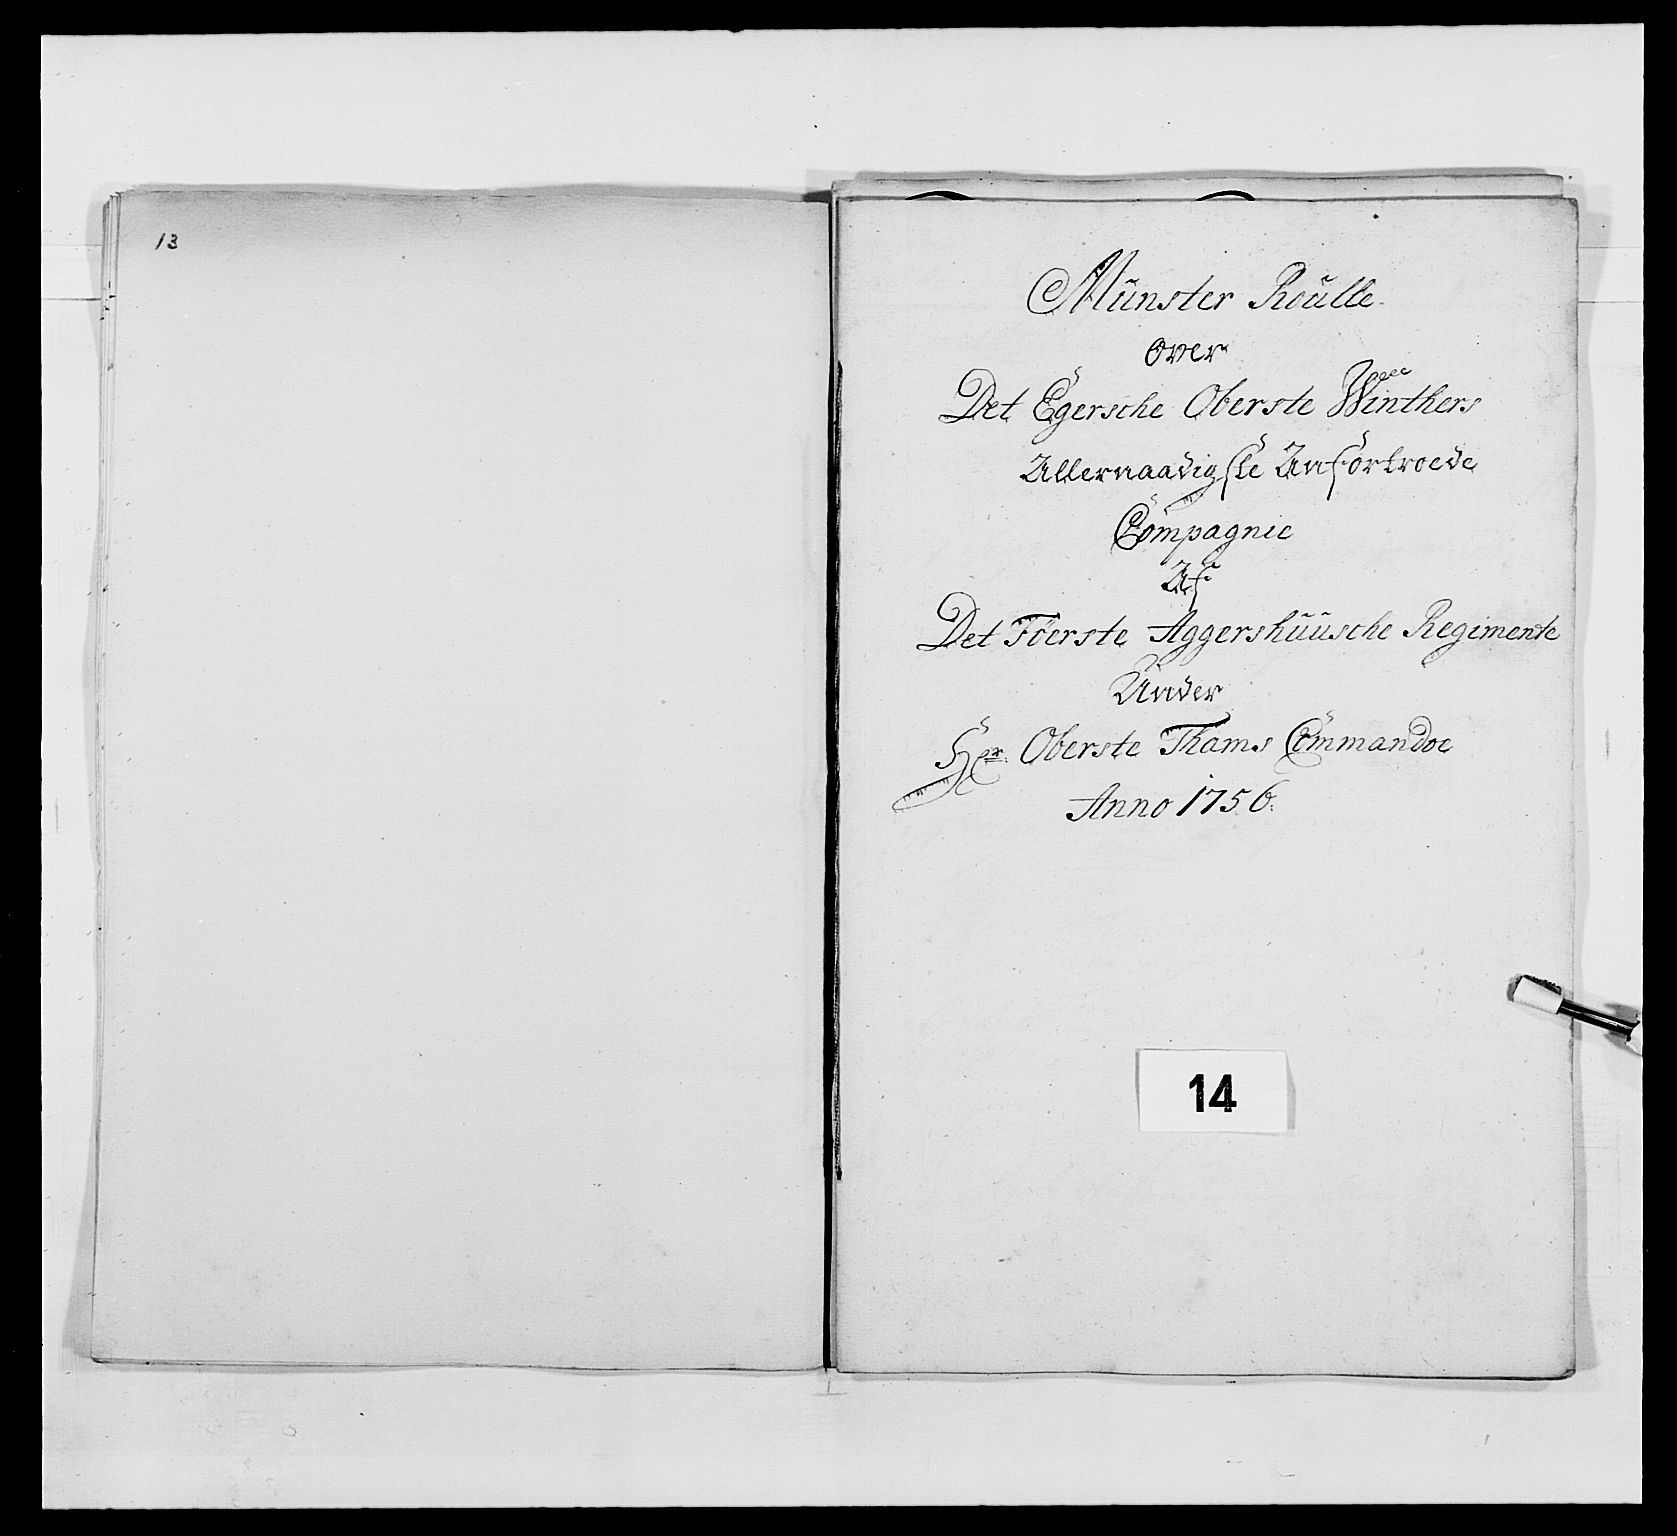 13
Münster Roülle
over
Det Egersche Oberste Winthers
Allernaadigste Anfortroede
Compagnie
Af
Det Föerste Aggershüüsche Regimente
Under
Hr. Oberste Thams Commandoe
Anno 1756.
14